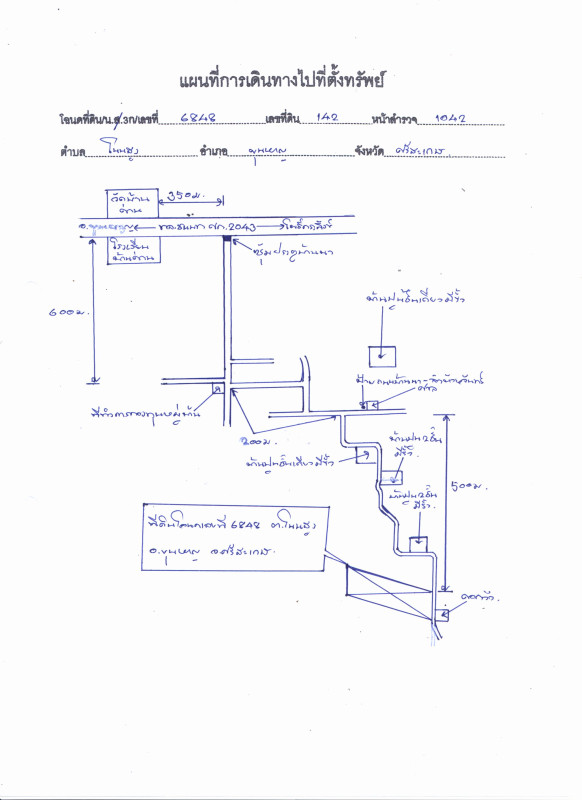 แผนที่การเดินทางไปที่ตั้งทรัพย์
โฉนดที่ดิน/น.ส.3ก/เลขที่ 6848 เลขที่ดิน 142 หน้าสำรวจ 1042
ตำบล โนนสูง อำเภอ ขุนหาญ จังหวัด ศรีสะเกษ
วัดบ้าน
ด่าน
350 ม.
อ.ขุนหาญ ศก. 2043
โรงเรียน
บ้านด่าน
ซุ้มประตูบ้านนา
600 ม.
บ้านปูนชั้นเดียวมีรั้ว
ที่ทำการกองทุนหมู่บ้าน
200 ม.
บ้านปูนชั้นเดียวมีรั้ว
บ้านปูน 2 ชั้น
มีรั้ว
500 ม.
บ้านปูน 2 ชั้น
มีรั้ว
ที่ดินโฉนดเลขที่ 6848 ต.โนนสูง
อ.ขุนหาญ จ.ศรีสะเกษ
คอกวัว